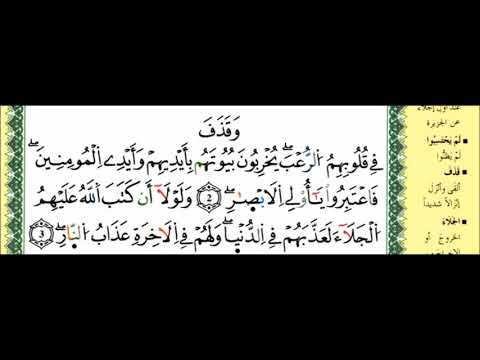 وَقَذَفَ
فِے قُلُوبِهِمُ الرُّعْبَۖ يُخْرِبُونَ بُيُوتَهُم بِأَيْدِيهِمْ وَأَيْدِے اِ۬لْمُومِنِينَۖ
فَاعْتَبِرُواْ يَٰٓأُوْلِے اِ۬لَابْصٰ۪رِۖ ②  وَلَوْلَآ أَن كَتَبَ اَ۬للَّهُ عَلَيْهِمُ
اُ۬لْجَلَآءَ لَعَذَّبَهُمْ فِے اِ۬لدُّنْي۪اۖ وَلَهُمْ فِے اِ۬لَاخِرَةِ عَذَابُ اُ۬لنّ۪ارِۖ ③
عند أول إجلاء
عن الجزيرة
لَمْ يَحْتَسِبُوا
لم يظنُّوا
قَذَفَ
ألقى وأنزل
إنزالاً شديداً
الجَلَاءَ
الخروج أو